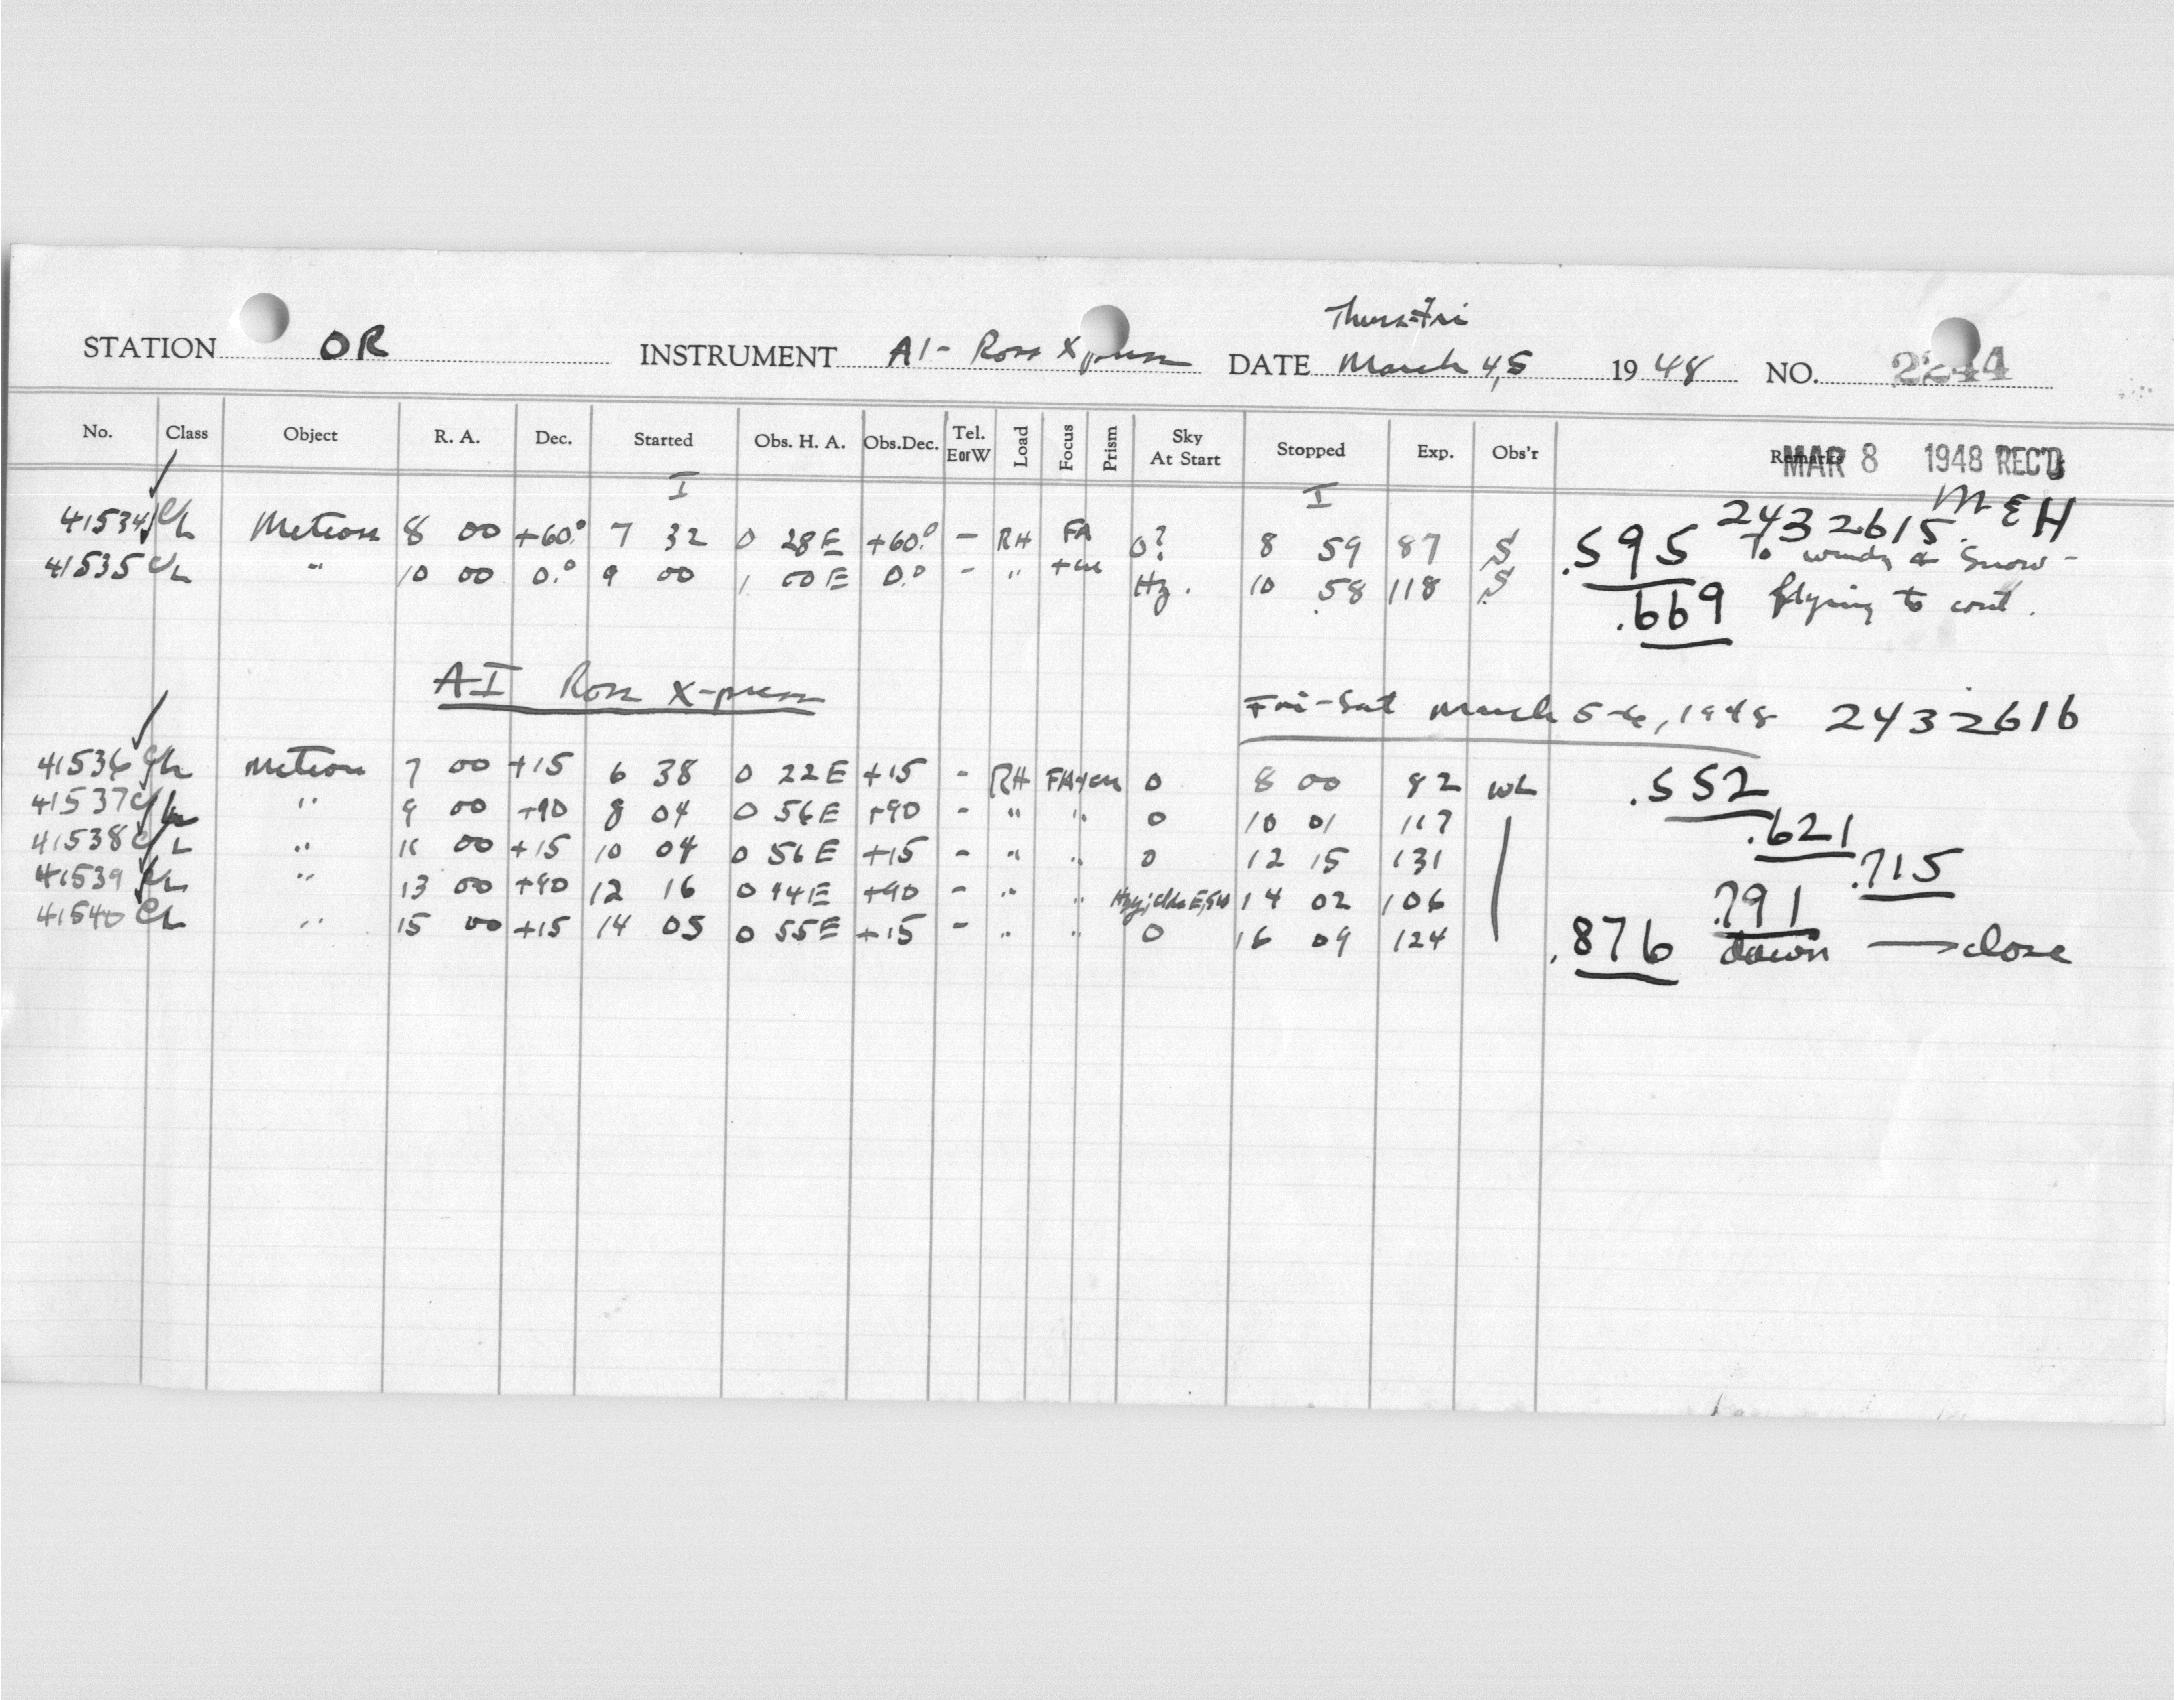 Thurs-Fri
STATION OR INSTRUMENT AI- Ross Xpress DATE March 4,5 1948 NO. 2244
No. Class Object R. A. Dec. Started Obs. H. A. Obs.Dec. Tel. EorW Load Focus Prism Sky At Start Stopped Exp. Obs'r Remarks
MAR 8 1948 REC'D
I I
M E H
2432615.
41534 C/L Meteors 8 00 +60° 7 32 0 28E +60° - RH FA 0? 8 59 87 S .595 To windy & Snow-
41535 C/L " 10 00 0° 9 00 1 00E 0° - " Hz. 10 58 118 S .669 flying to cont.
AI Ross X-press Fri-Sat March 5-6, 1948 2432616
41536 C/L Meteors 7 00 +15 6 38 0 22E +15 - RH 0 8 00 82 WL .552
41537 C/L " 9 00 +90 8 04 0 56E +90 - " " 0 10 01 117 .621
41538 C/L " 11 00 +15 10 04 0 56E +15 - " " 0 12 15 131 .715
41539 C/L " 13 00 +90 12 16 0 44E +90 - " " 14 02 106 .791
41540 CL " 15 00 +15 14 05 0 55E +15 - " " 0 16 09 124 .876 dawn → close